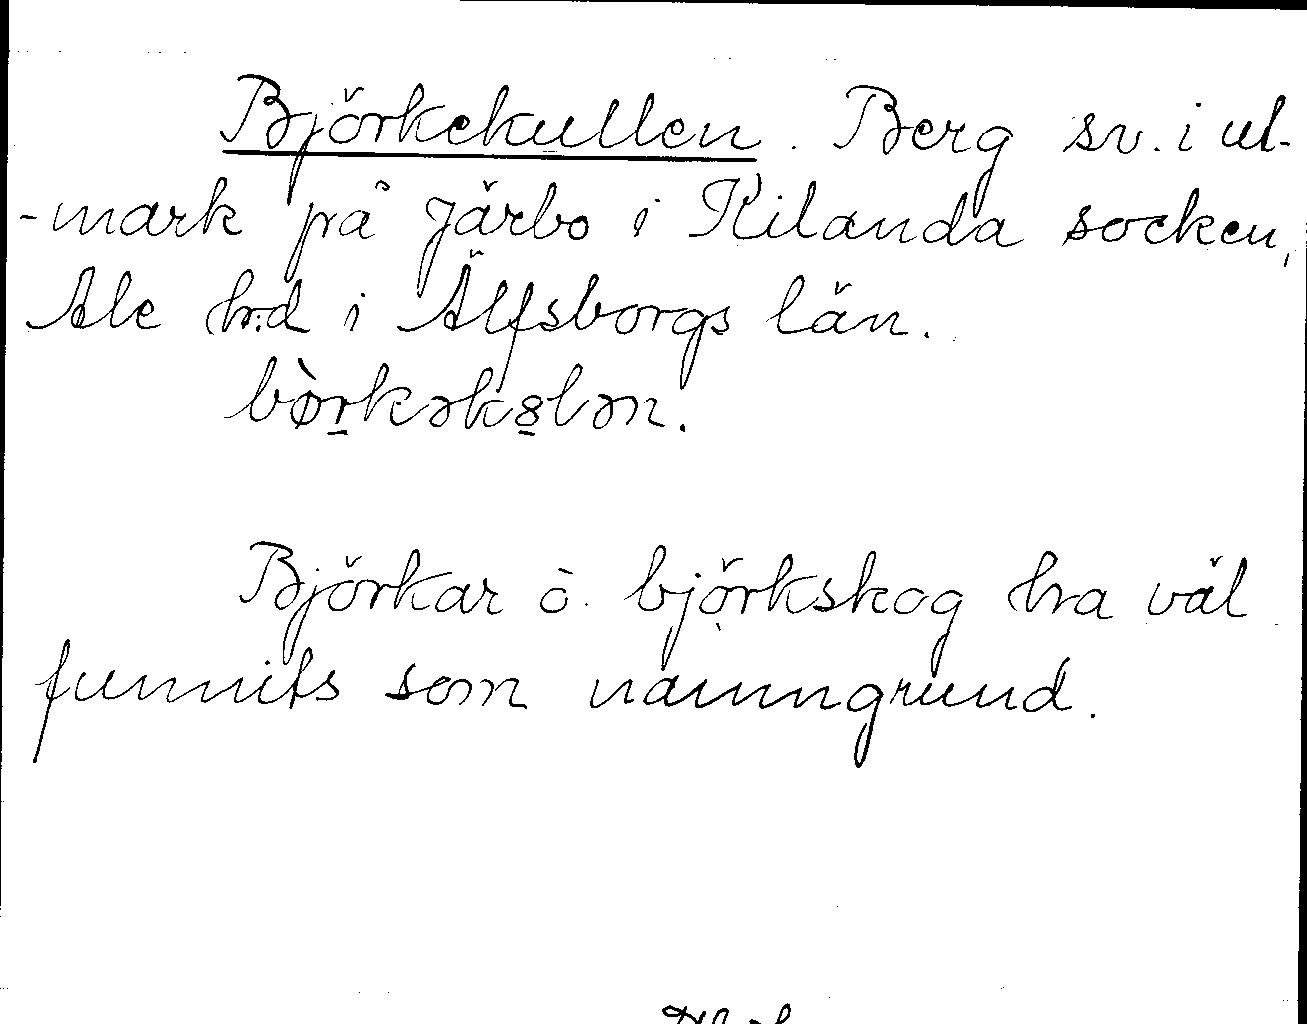 Björkekullen. Berg sv. i ut-
-mark på Järbo i Kilanda socken,
Ale h:d i Älfsborgs län.
bø̀rkəkslən.
Björkar o. björkskog ha väl
funnits som namngrund.